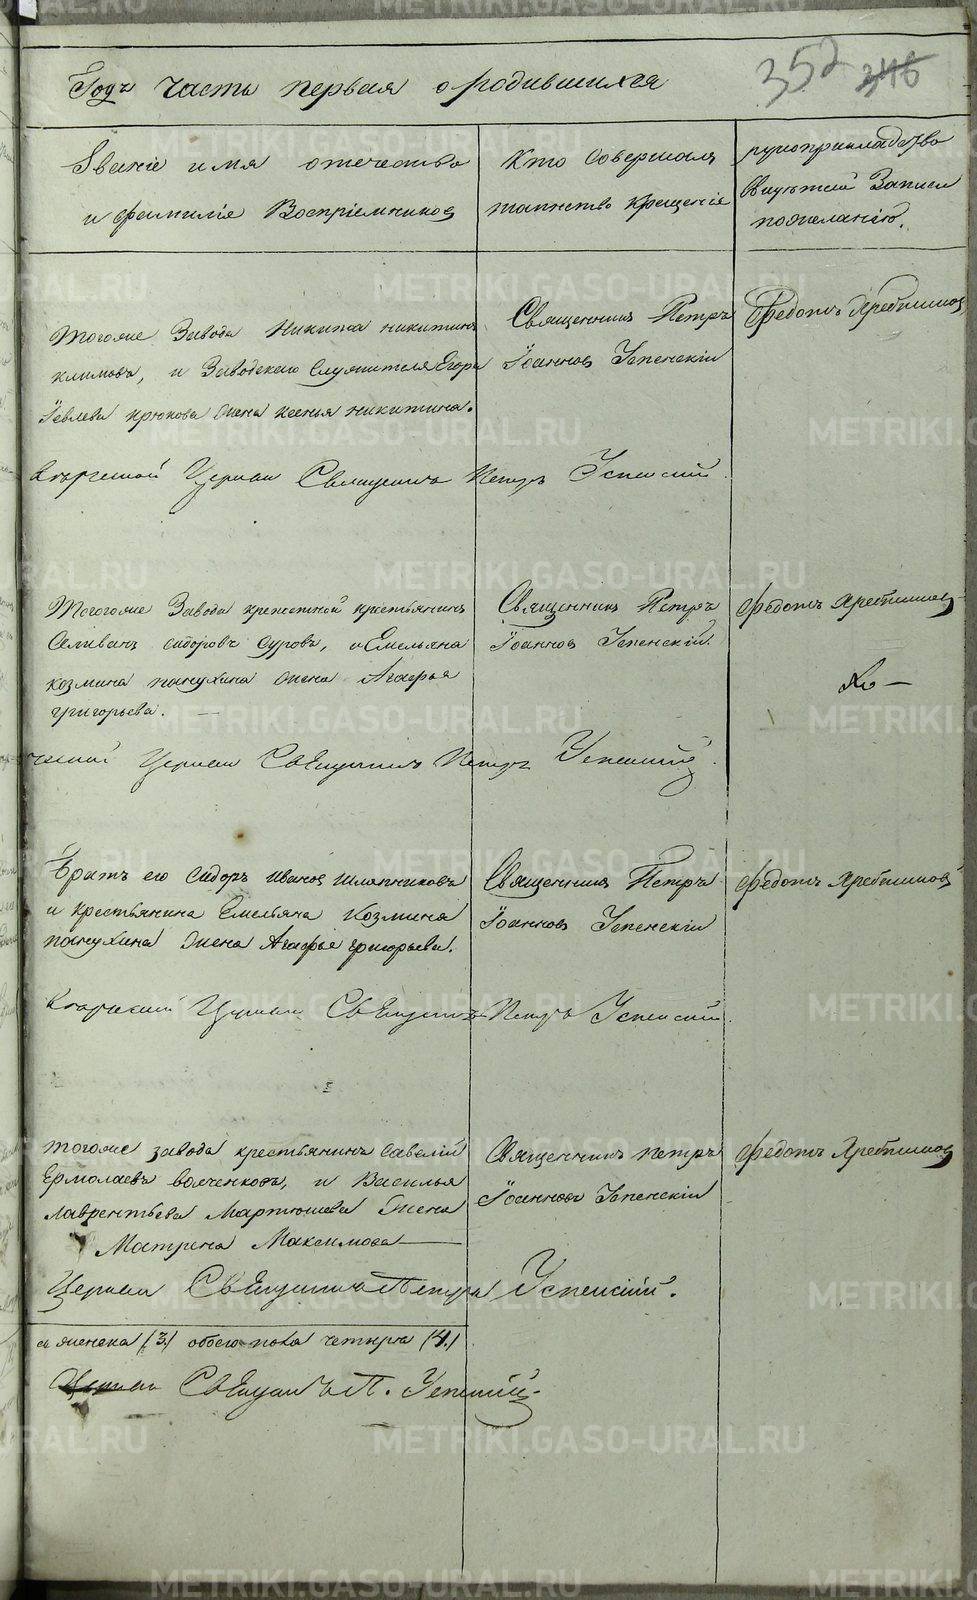 352 346
Годъ часть первая о родившихся
Званіе имя отечество
и фамиліе Воспріемников
Кто Совершалъ
таинство крещенія
рукоприкладство
Записи
по желанію.
Тогоже Завода Никита никитинъ
климовъ, и Заводскаго Служителя Егора
Іевлева крюкова жена ксенья никитина.
Священникъ Петръ
Іоанновъ Успенскій
Федотъ Хребтиков
Церкви Священникъ Петръ Успенский
Тогоже Завода крепостной крестьянинъ
Селиванъ сидоровъ суровъ, и Емельяна
козмина папухина жена Агафья
григорьева. —
Священникъ Петръ
Іоанновъ Успенскій.
Федотъ Хребтиков
Церкви Священникъ Петръ Успенский
Братъ его Сидоръ Ивановъ шляпниковъ
и крестьянина Емельяна Козмина
папухина жена Агафья григорьева.
Священникъ Петръ
Іоанновъ Успенскій
Федотъ Хребтиковъ
Церкви Священникъ Петръ Успенский
тогоже завода крестьянинъ савелій
Ермолаевъ волченковъ, и Василья
Лаврентьева Мартюшева жена
Матрена Максимова —
Священникъ петръ
Іоанновъ Успенскій
Федотъ Хребтиков
Церкви Священникъ Петръ Успенский.
а женска (3.) обоего пола четыре (4.)
Церкви Священникъ П. Успенский
METRIKI.GASO-URAL.RU